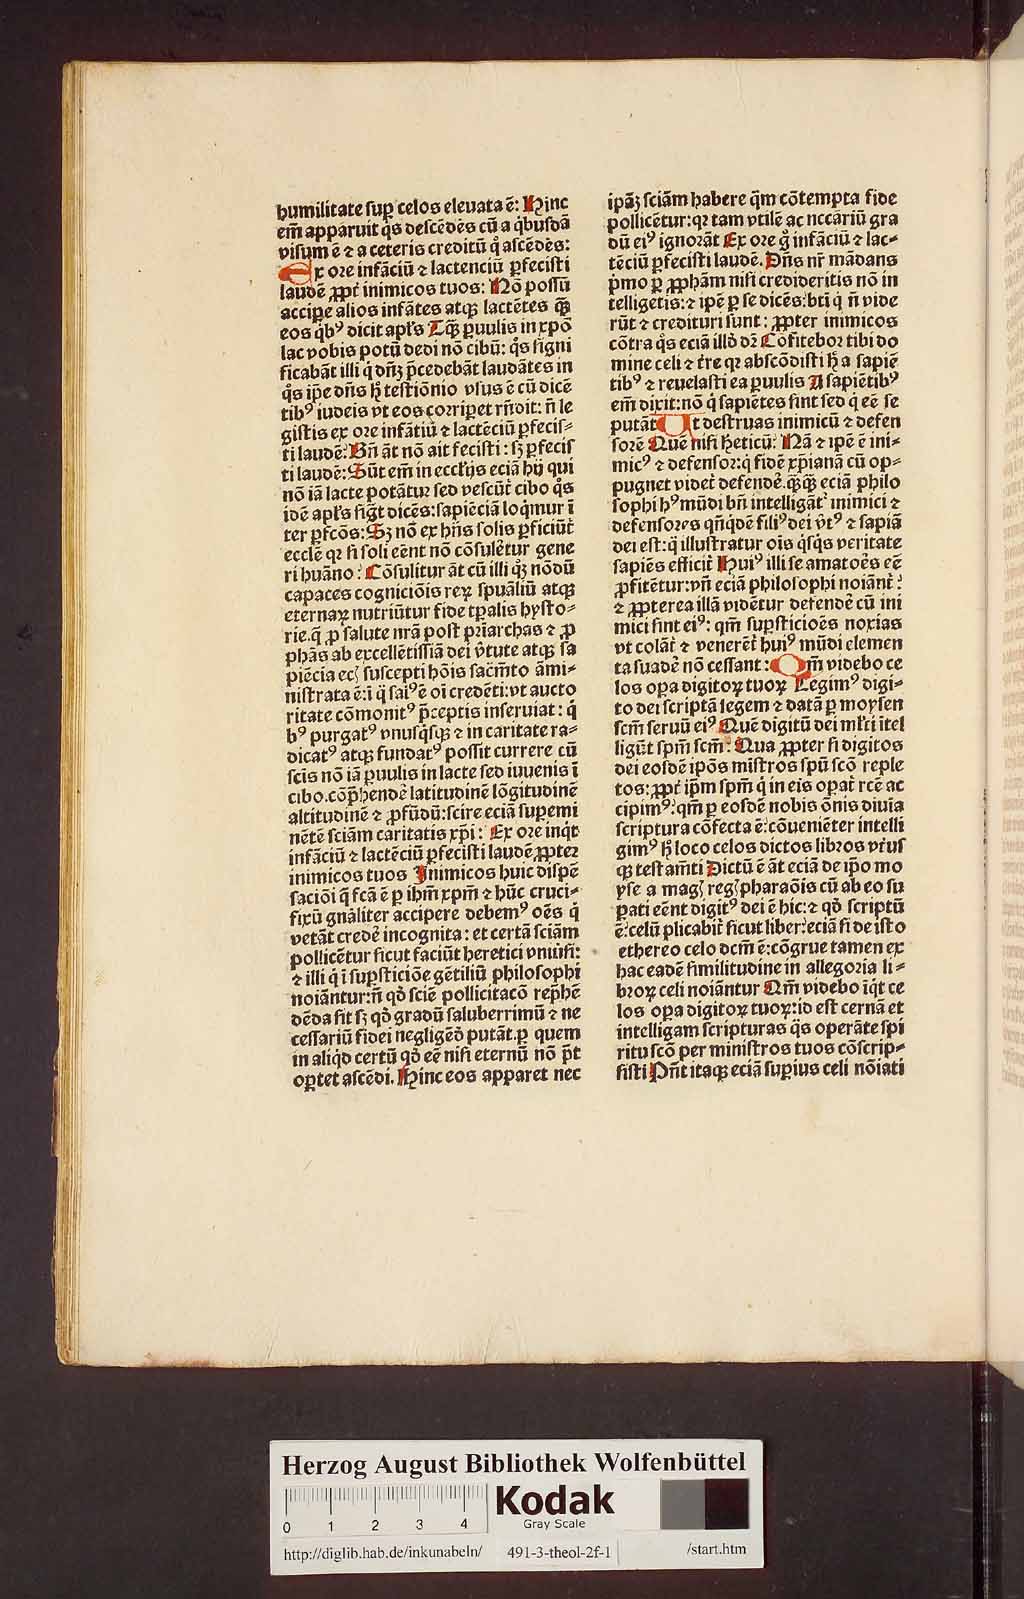 humilitate sup̱ celos eleuata ē: Hinc
em̄ apparuit q̊s descēdēs cū a q̇busdā
visum ē ⁊ a ceteris creditū q̊ ascēdēs:
Ex ore infāciū ⁊ lactenciū ꝑfecisti
laudē ꝓpt̄ inimicos tuos: Nō possū
accipe alios infātes atqꝫ lactētes qꝫ̄
eos q̇bꝰ dicit apl̄s Tqꝫ̄ ꝑuulis in xpō
lac vobis potū dedi nō cibū: q̊s signi
ficabāt illi q̇ dn̄ꝫ p̄cedebāt laudātes in
q̊s ip̄e dn̄s hͦ testiōnio vsus ē cū dicē
tibꝰ iudeis vt eos corriꝑet rn̄dit: n̄ le
gistis ex ore infātiū ⁊ lactēciū ꝑfecis⸗
ti laudē: Bn̄ āt nō ait fecisti: sꝫ ꝑfecis
ti laudē: Sūt em̄ in eccl̄ijs eciā hij qui
nō iā lacte potātur sed vescūt̄ cibo q̊s
idē apl̄s siḡt dicēs: sapiēciā loq̇mur ī
ter ꝑfcōs: Sꝫ nō ex hn̄s solis ꝑficiūt̄
ecclē qꝛ si soli eēnt nō cōsulētur gene
ri huāno: Cōsulitur āt cū illi qꝫ nōdū
capaces cogniciōis reꝝ spuāliū atqꝫ
eternaꝝ nutriūtur fide tꝑalis hysto⸗
rie. q̄ ꝓ salute nrā post pr̄iarchas ⁊ ꝓ
phās ab excellētissiā dei v̄tute atqꝫ sa
piēcia ecꝫ suscepti hōis sacm̄to āmi⸗
nistrata ē: ī q̇ sal̄ꝰ ē oī credēti: vt aucto
ritate cōmonitꝰ p̄ceptis inseruiat: q̇
bꝰ purgatꝰ vnusq̇sqꝫ ⁊ in caritate ra⸗
dicatꝰ atqꝫ fundatꝰ possit currere cū
scīs nō iā ꝑuulis in lacte sed iuuenis ī
cibo. cōp̄hendē latitudinē lōgitudinē
altitudinē ⁊ ꝓfūdū: scire eciā suꝑemi
nētē sciām caritatis xp̄i: Ex ore inq̇t
infāciū ⁊ lactēciū ꝑfecisti laudē ꝓpter
inimicos tuos Inimicos huic dispē
saciōi q̄ fcā ē ꝑ ihm̄ xpm̄ ⁊ hūc cruci⸗
fixū gnāliter accipere debemꝰ oēs q̇
vetāt credē incognita: et certā sciām
pollicētur sicut faciūt heretici vniūsi:
⁊ illi q̇ ī suꝑsticiōe gētiliū philosophi
noiāntur: n̄ qd̄ sciē pollicitacō rep̄hē
dēda sit sꝫ qd̄ gradū saluberrimū ⁊ ne
cessariū fidei negligēdō putāt. ꝑ quem
in aliqd̄ certū qd̄ eē nisi eternū nō p̄t
oportet ascēdi. Hinc eos apparet nec
ipāꝫ sciām habere q̄m cōtempta fide
pollicētur: qꝛ tam vtilē ac nccāriū gra
dū eiꝰ ignorāt Ex ore g̊ infāciū ⁊ lac⸗
tēciū ꝑfecisti laudē. Dn̄s nr̄ mādans
pͥmo ꝑ ꝓphām nisi credideritis nō in
telligetis: ⁊ ip̄e ꝑ se dicēs: bt̄i q̇ n̄ vide
rūt ⁊ credituri sunt: ꝓpter inimicos
cōtra q̊s eciā illd̄ dr̄ Cōfitebor tibi do
mine celi ⁊ tr̄e qꝛ abscōdisti hͨ a sapiē
tibꝰ ⁊ reuelasti ea ꝑuulis A sapiētibꝰ
em̄ dixit: nō q̇ sapiētes sint sed q̇ eē se
putāt Ut destruas inimicū ⁊ defen
sorē Quē nisi hēticū: Nā ⁊ ip̄e ē ini⸗
micꝰ ⁊ defensor: q̇ fidē xp̄ianā cū op⸗
pugnet videt̄ defendē. q̄qꝫ̄ eciā philo
sophi hꝰ mūdi bn̄ intelligāt̄ inimici ⁊
defensores qn̄qdē filiꝰ dei v̄tꝰ ⁊ sapiā
dei est: q̇ illustratur oīs q̇sqꝫ veritate
sapiēs efficit̄ Huiꝰ illi se amatoēs eē
ꝓfitētur: vn̄ eciā philosophi noiānt̄:
⁊ ꝓpterea illā vidētur defendē cū ini
mici sint eiꝰ: qm̄ suꝑsticioēs noxias
vt colāt̄ ⁊ venerēt̄ huiꝰ mūdi elemen
ta suadē nō cessant: Qm̄ videbo ce
los oꝑa digitoꝝ tuoꝝ Legimꝰ digi⸗
to dei scriptā legem ⁊ datā ꝑ moysen
scm̄ seruū eiꝰ Quē digitū dei ml̄ti ītel
ligūt spm̄ scm̄: Qua ꝓpter si digitos
dei eosdē ipōs mīstros spū scō reple
tos: ꝓpt̄ ip̄m spm̄ q̇ in eis oꝑat̄ rcē ac
cipimꝰ: qm̄ ꝑ eosdē nobis ōnis diuīa
scriptura cōfecta ē: cōueniēter intelli
gimꝰ hͦ loco celos dictos libros vt̄ius
qꝫ testam̄ti Dictū ē āt eciā de ip̄o mo
yse a magꝭ regꝭ pharaōis cū ab eo su
ꝑati eēnt digitꝰ dei ē hic: ⁊ qd̄ scriptū
ē: celū plicabit̄ sicut liber: eciā si de isto
ethereo celo dcm̄ ē: cōgrue tamen ex
hac eadē similitudine in allegoria li⸗
broꝝ celi noiāntur Qm̄ videbo īq̇t ce
los oꝑa digitoꝝ tuoꝝ: id est cernā et
intelligam scripturas q̇s operāte spi
ritu scō per ministros tuos cōscrip⸗
sisti Pn̄t itaqꝫ eciā suꝑius celi nōiati
Herzog August Bibliothek Wolfenbüttel
0 1 2 3 4
Kodak
Gray Scale
http://diglib.hab.de/inkunabeln/ 491-3-theol-2f-1 /start.htm